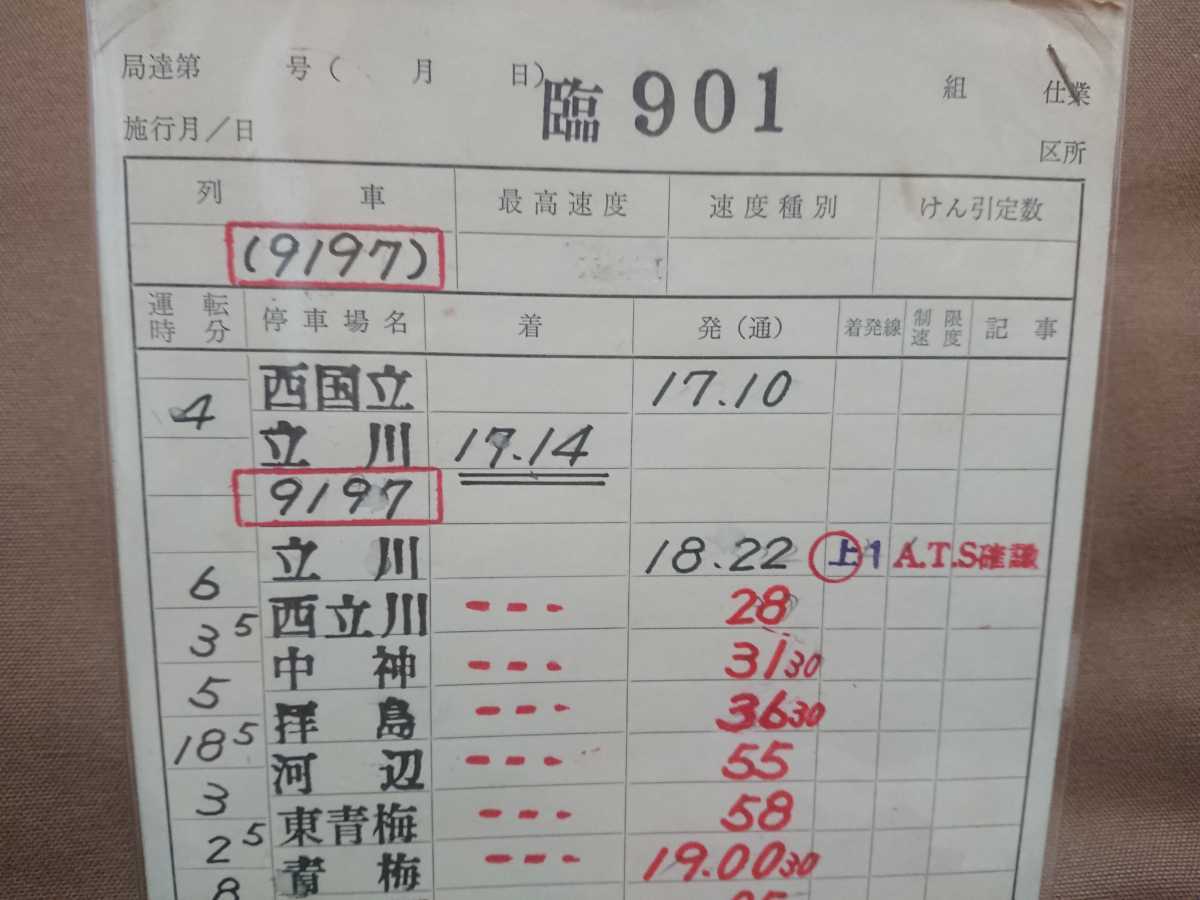 局達第 号( 月 日) 臨 901 組 仕業
施行月/日 区所
列 車 最高速度 速度種別 けん引定数
(9197)
運転時分 停車場名 着 発(通) 着発線 制限速度 記事
西国立 17.10
4
立川 17.14
9197
立川 18.22 上1 A.T.S確認
6
西立川 --- 28
3 5
中神 --- 31 30
5
拝島 --- 36 30
18 5
河辺 --- 55
3
東青梅 --- 58
2 5
青梅 --- 19.00 30
8